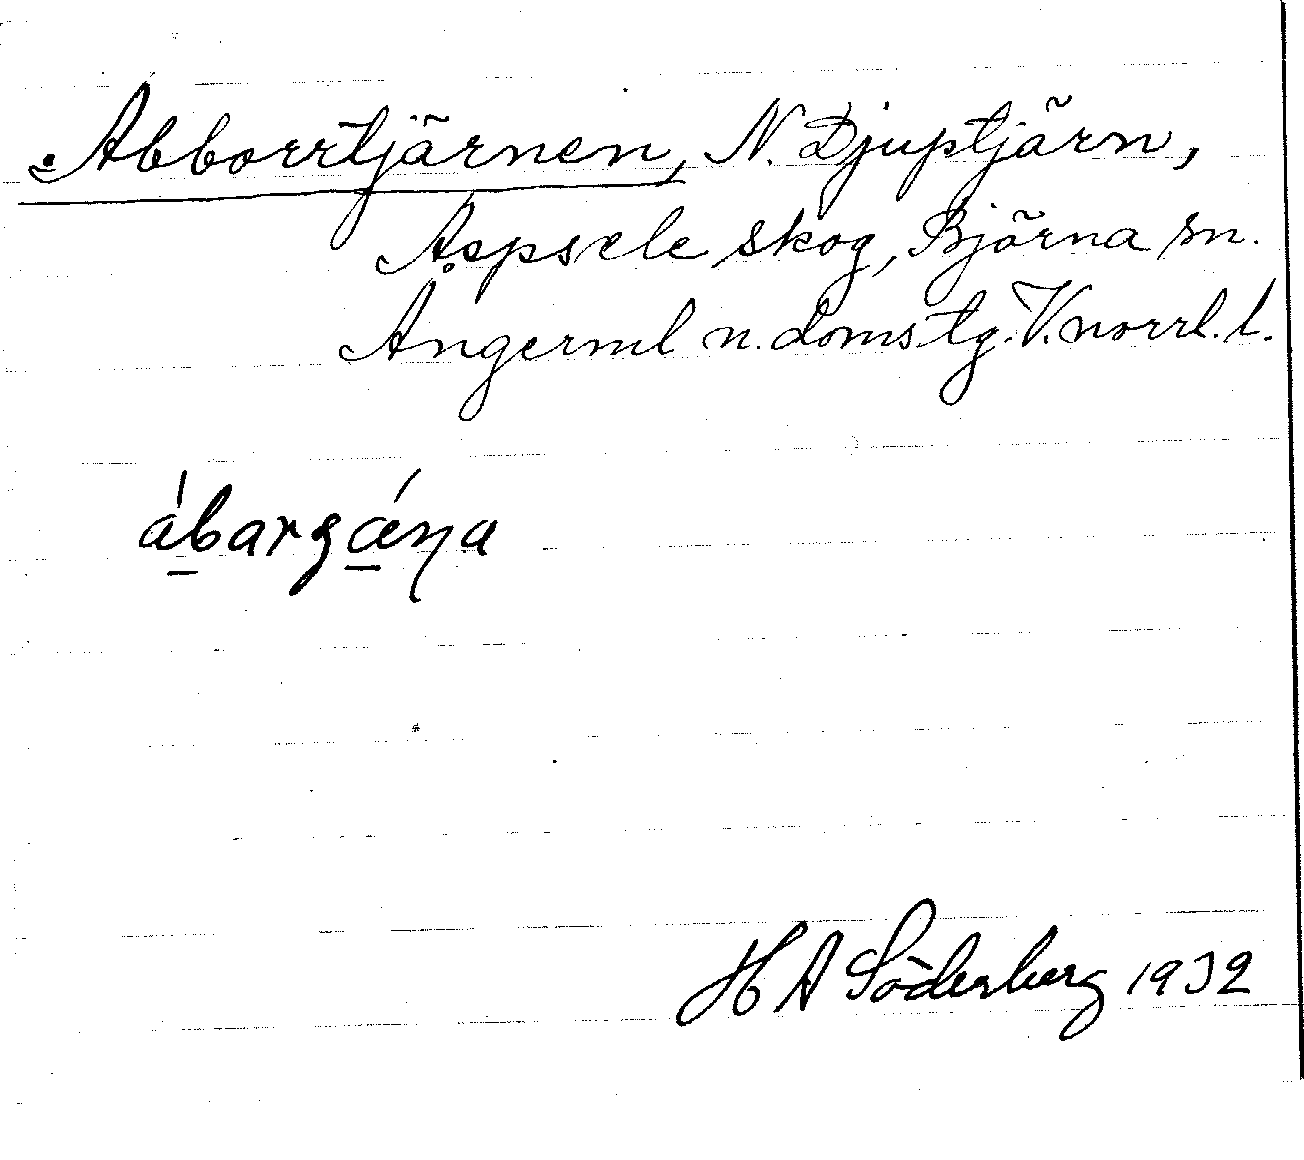 Abborrtjärnen, N. Djuptjärn,
Aspsele skog, Björna sn.
Ångerml n. domstg. V.norrl. l.
ábargǽŋa
H A Söderberg 1932